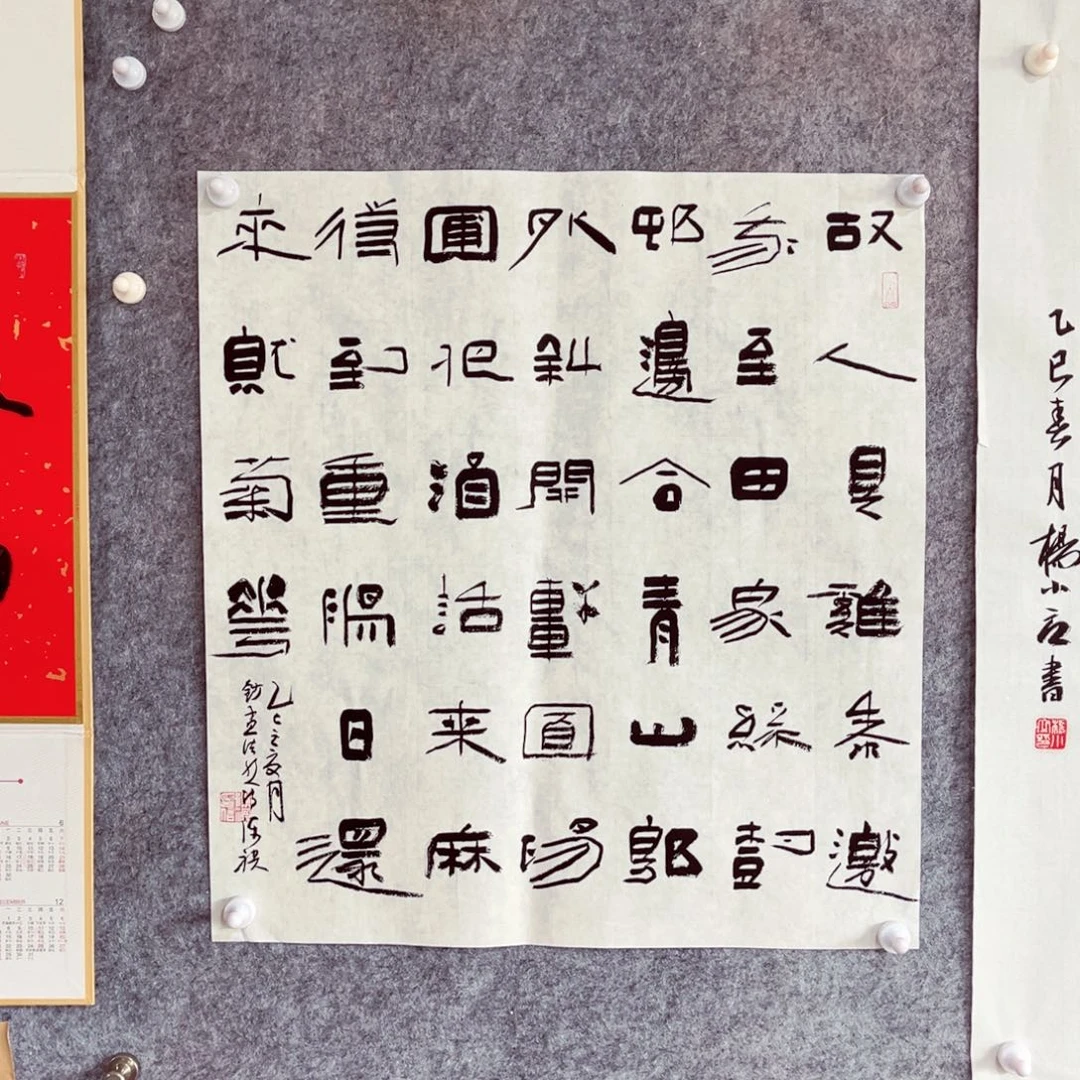 故人具雞黍邀
我至田家綠樹
邨邊合青山郭
外斜開軒面場
圃把酒話来麻
待到重陽日還
來就菊華
乙巳夏月
乙巳春月楊小書
6
12